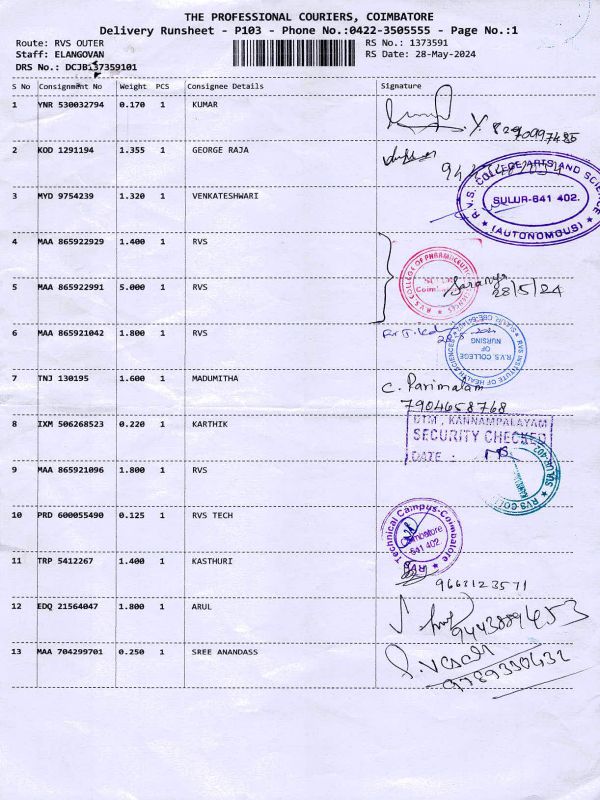 THE PROFESSIONAL COURIERS, COIMBATORE
Delivery Runsheet - P103 - Phone No.:0422-3505555 - Page No.:1
Route: RVS OUTER
RS No.: 1373591
Staff: ELANGOVAN
RS Date: 28-May-2024
DRS No.: DCJB137359101
S No Consignment No Weight PCS Consignee Details Signature
1 YNR 530032794 0.170 1 KUMAR
2 KOD 1291194 1.355 1 GEORGE RAJA
3 MYD 9754239 1.320 1 VENKATESHWARI
R.V.S. COLLEGE ARTS AND SCIENCE
SULUR-641 402.
(AUTONOMOUS)
4 MAA 865922929 1.400 1 RVS
R.V.S. COLLEGE OF PHARMACEUTICAL SCIENCES
5 MAA 865922991 5.000 1 RVS
Saranya
28/5/24
6 MAA 865921042 1.800 1 RVS
R.V.S. COLLEGE OF NURSING
RVS INSTITUTE OF HEALTH SCIENCES
7 TNJ 130195 1.600 1 MADUMITHA
C. Parimalam
7904658768
8 IXM 506268523 0.220 1 KARTHIK
DTM, KANNAMPALAYAM
SECURITY CHECKED
DATE :
9 MAA 865921096 1.800 1 RVS
10 PRD 600055490 0.125 1 RVS TECH
Technical Campus-Coimbatore
Coimbatore
641 402
RVS
11 TRP 5412267 1.400 1 KASTHURI
9663123571
12 EDQ 21564047 1.800 1 ARUL
13 MAA 704299701 0.250 1 SREE ANANDASS
9789350432